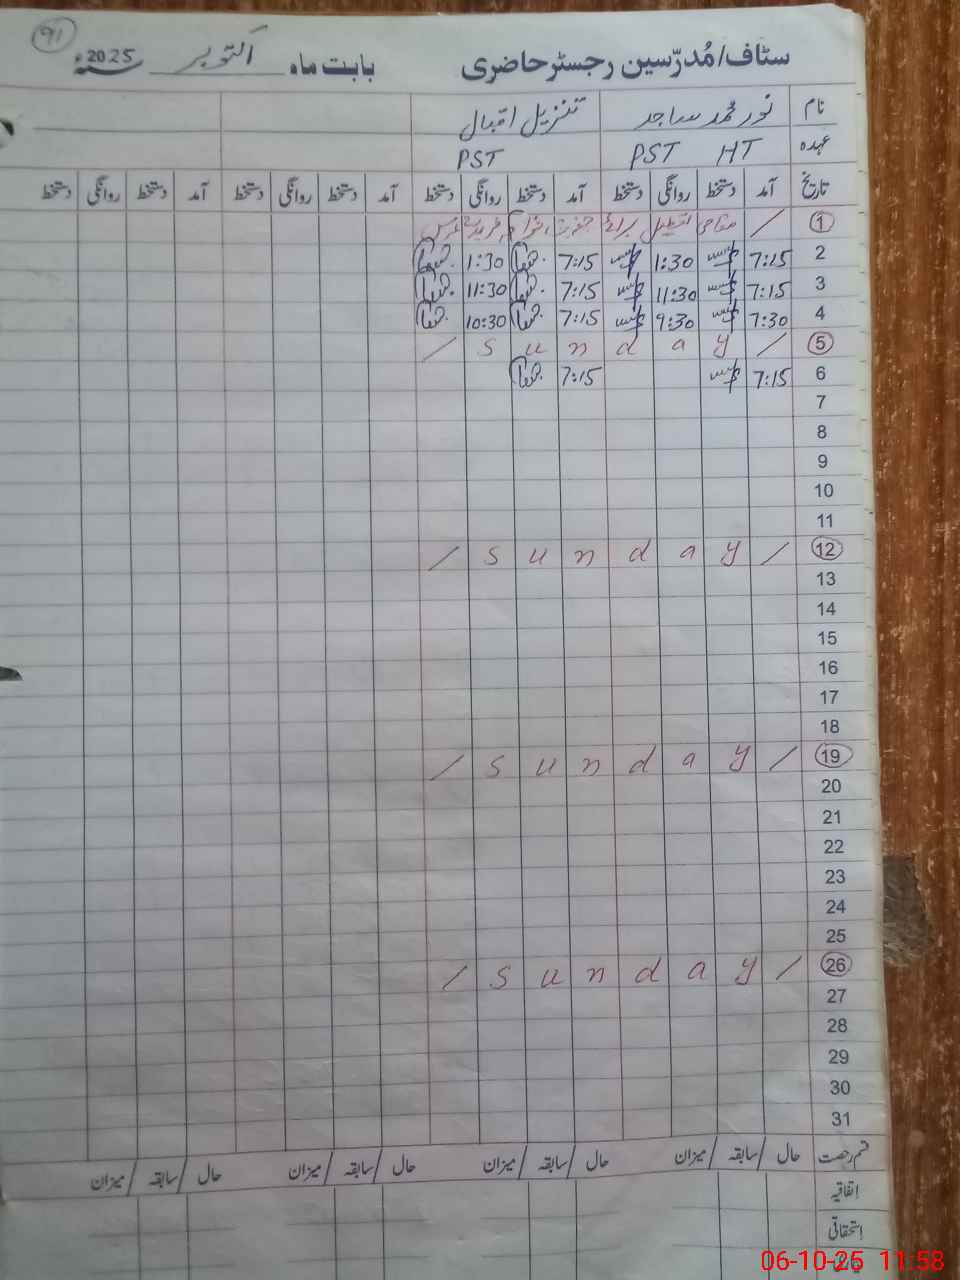 91
سٹاف/مُدرّسین رجسٹر حاضری بابت ماہ اکتوبر سنہ 2025ء
نام نور محمد ساجد تنزیل اقبال
عہدہ PST HT PST
تاریخ آمد دستخط روانگی دستخط آمد دستخط روانگی دستخط آمد دستخط روانگی دستخط آمد دستخط روانگی دستخط
1 / مقامی تعطیل برائے خواجہ فرید عرس
2 7:15 1:30 7:15 1:30
3 7:15 11:30 7:15 11:30
4 7:30 9:30 7:15 10:30
5 / s u n d a y /
6 7:15 7:15
7
8
9
10
11
12 / s u n d a y /
13
14
15
16
17
18
19 / s u n d a y /
20
21
22
23
24
25
26 / s u n d a y /
27
28
29
30
31
قسم رخصت حال / سابقہ / میزان حال / سابقہ / میزان حال / سابقہ / میزان حال / سابقہ / میزان
اتفاقیہ
استحقاقی
06-10-25 11:58